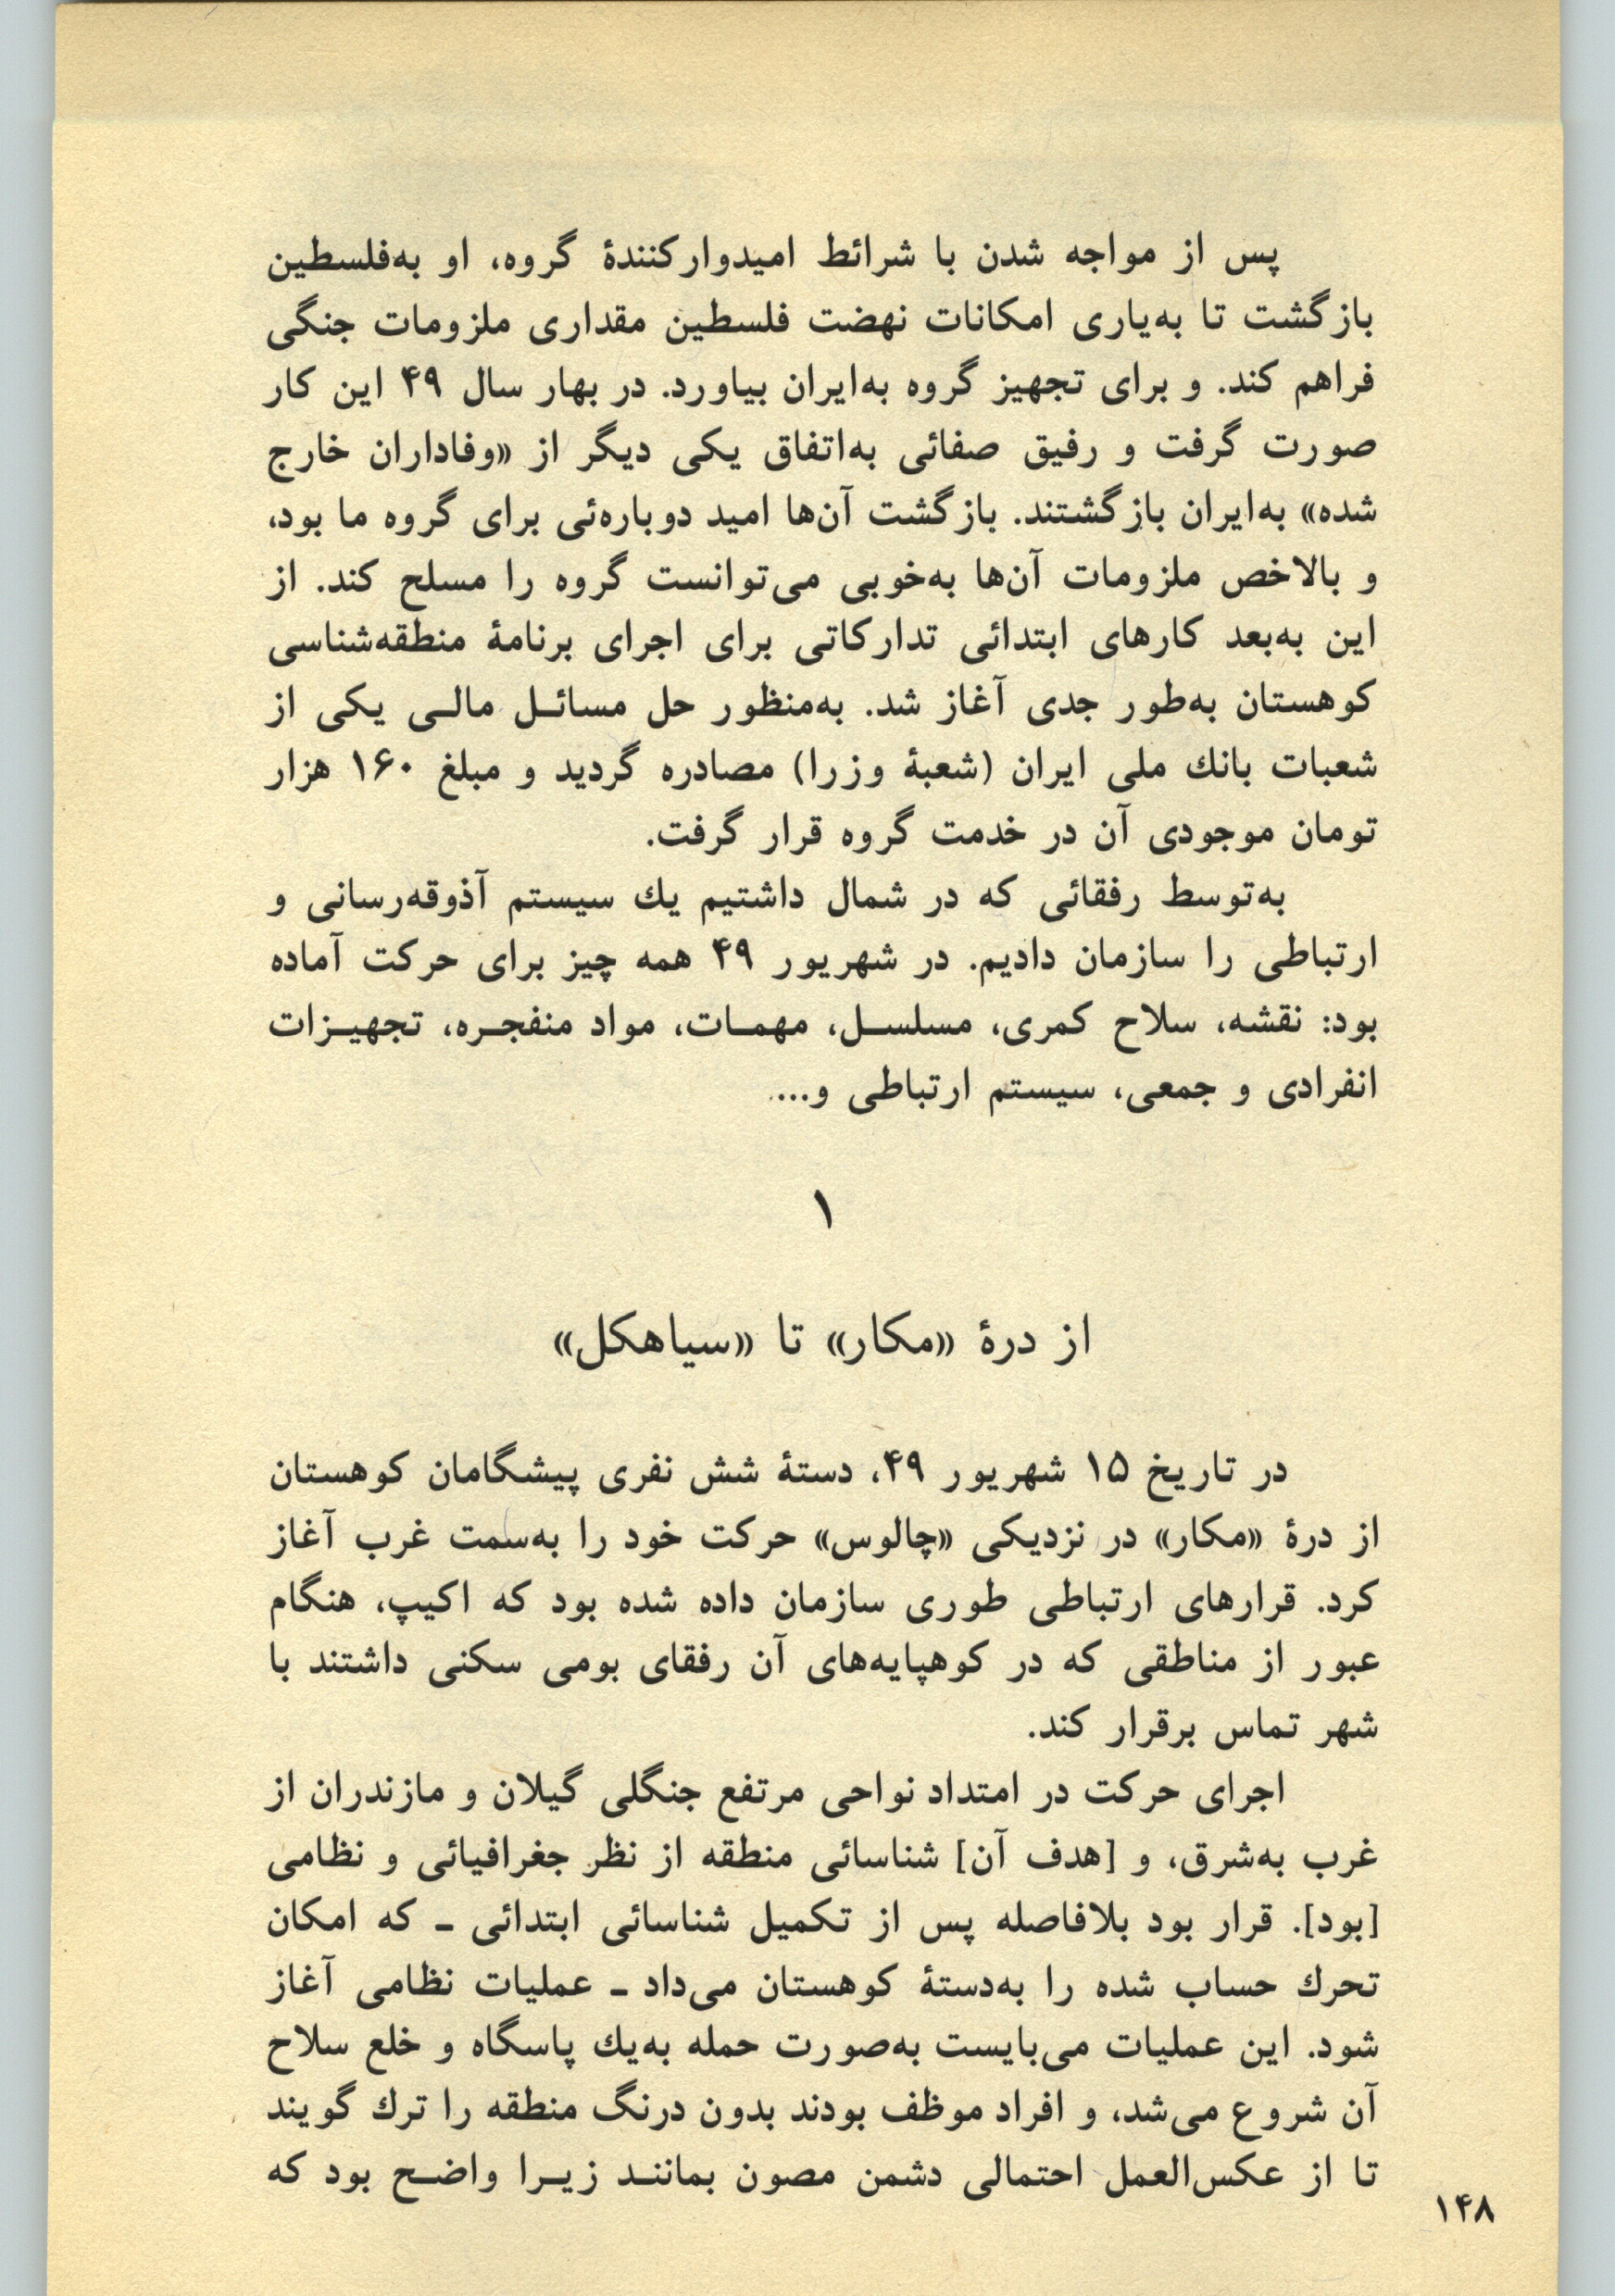 پس از مواجه شدن با شرائط امیدوارکنندهٔ گروه، او به‌فلسطین
بازگشت تا به‌یاری امکانات نهضت فلسطین مقداری ملزومات جنگی
فراهم کند. و برای تجهیز گروه به‌ایران بیاورد. در بهار سال ۴۹ این کار
صورت گرفت و رفیق صفائی به‌اتفاق یکی دیگر از «وفاداران خارج
شده» به‌ایران بازگشتند. بازگشت آن‌ها امید دوباره‌ئی برای گروه ما بود،
و بالاخص ملزومات آن‌ها به‌خوبی می‌توانست گروه را مسلح کند. از
این به‌بعد کارهای ابتدائی تدارکاتی برای اجرای برنامهٔ منطقه‌شناسی
کوهستان به‌طور جدی آغاز شد. به‌منظور حل مسائـل مالـی یکی از
شعبات بانك ملی ایران (شعبهٔ وزرا) مصادره گردید و مبلغ ۱۶۰ هزار
تومان موجودی آن در خدمت گروه قرار گرفت.
به‌توسط رفقائی که در شمال داشتیم یك سیستم آذوقه‌رسانی و
ارتباطی را سازمان دادیم. در شهریور ۴۹ همه چیز برای حرکت آماده
بود: نقشه، سلاح کمری، مسلسـل، مهمـات، مواد منفجـره، تجهیـزات
انفرادی و جمعی، سیستم ارتباطی و...
۱
از درهٔ «مکار» تا «سیاهکل»
در تاریخ ۱۵ شهریور ۴۹، دستهٔ شش نفری پیشگامان کوهستان
از درهٔ «مکار» در نزدیکی «چالوس» حرکت خود را به‌سمت غرب آغاز
کرد. قرارهای ارتباطی طوری سازمان داده شده بود که اکیپ، هنگام
عبور از مناطقی که در کوهپایه‌های آن رفقای بومی سکنی داشتند با
شهر تماس برقرار کند.
اجرای حرکت در امتداد نواحی مرتفع جنگلی گیلان و مازندران از
غرب به‌شرق، و [هدف آن] شناسائی منطقه از نظر جغرافیائی و نظامی
[بود]. قرار بود بلافاصله پس از تکمیل شناسائی ابتدائی ـ که امکان
تحرك حساب شده را به‌دستهٔ کوهستان می‌داد ـ عملیات نظامی آغاز
شود. این عملیات می‌بایست به‌صورت حمله به‌یك پاسگاه و خلع سلاح
آن شروع می‌شد، و افراد موظف بودند بدون درنگ منطقه را ترك گویند
تا از عکس‌العمل احتمالی دشمن مصون بماننـد زیـرا واضـح بود که
۱۴۸